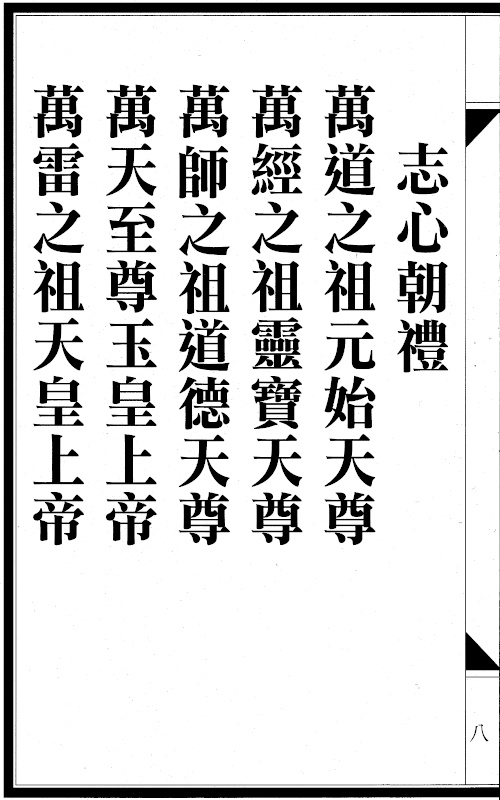 志心朝禮
萬道之祖元始天尊
萬經之祖靈寶天尊
萬師之祖道德天尊
萬天至尊玉皇上帝
萬雷之祖天皇上帝
八